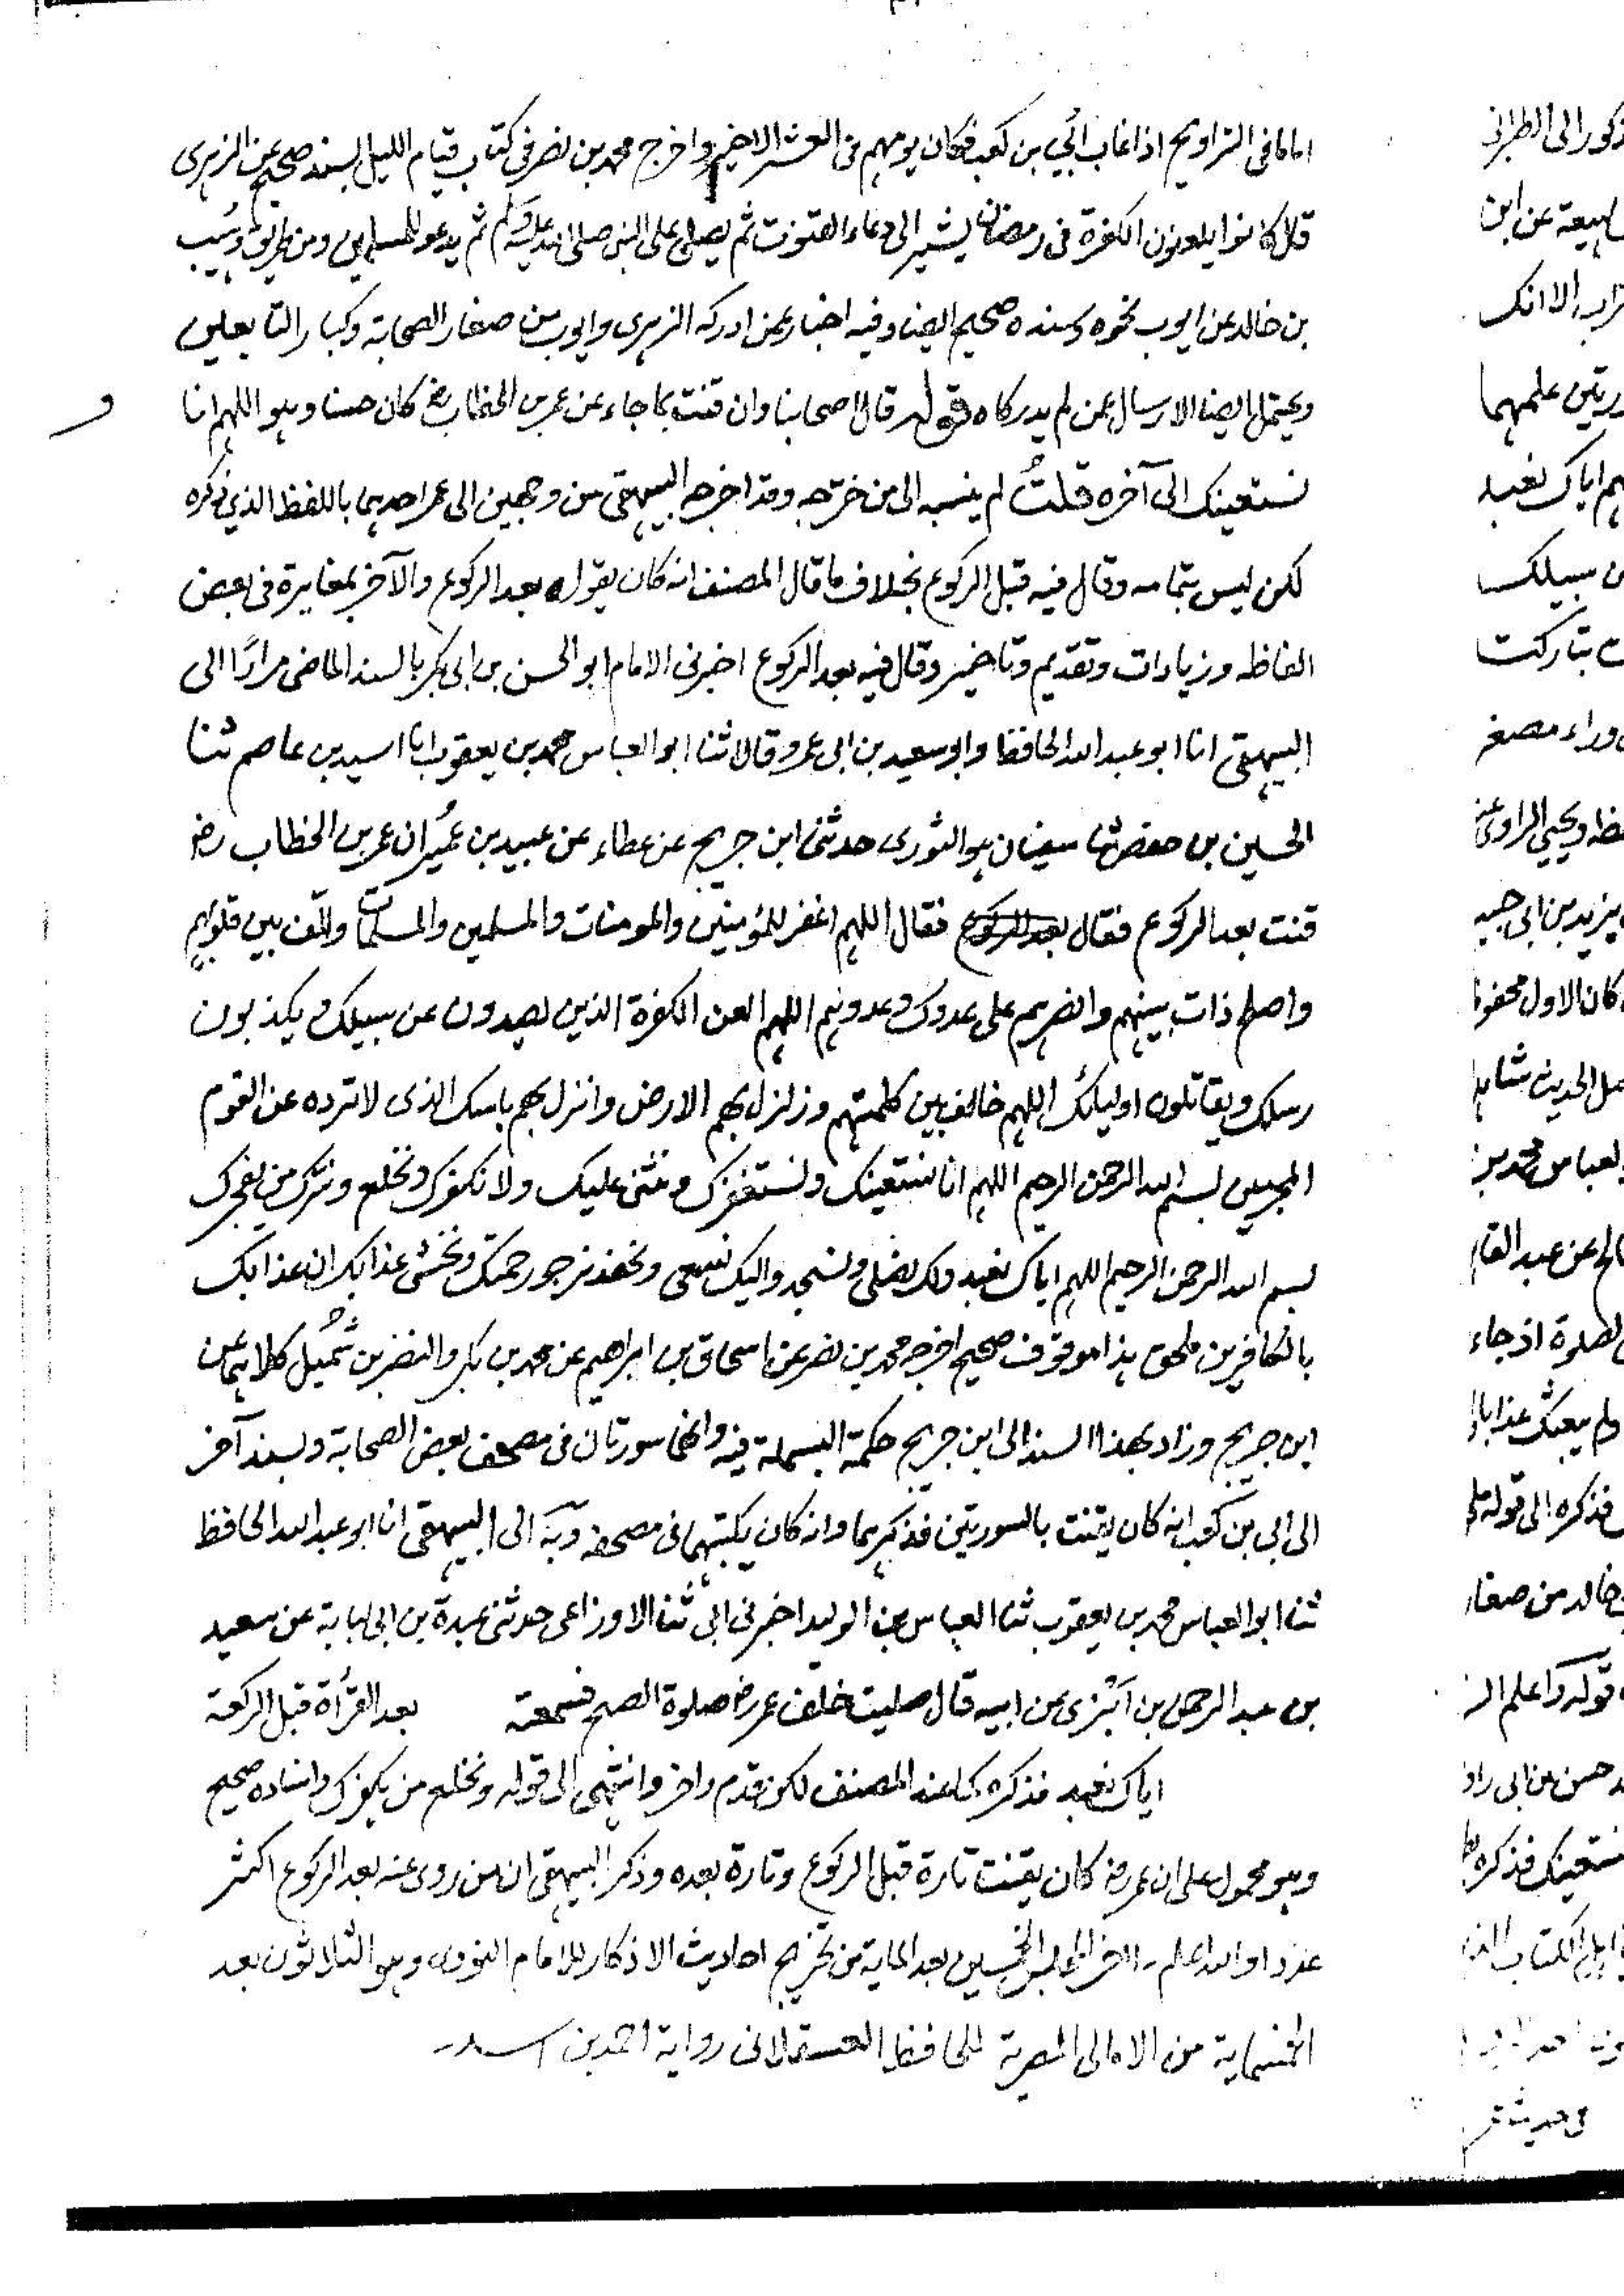 اماما فى التراويح اذا غاب ابُي بن كعب فكان يومهم فى العشر الاخير واخرج محمد بن نصر فى كتاب قيام الليل بسند صحيح عن الزهرى
قال كانوا يلعنون الكفرة فى رمضان يشير الى دعاء القنوت ثم يصلى على النبى صلى الله عليه وسلم ثم يدعو للمسلمين ومن طريق وهيب
بن خالد عن ايوب نحوه وسنده صحيح ايضا وفيه اخبار عمن ادركه الزهرى وايوب من صغار الصحابة وكبار التابعين
ويحتمل ايضا الارسال عمن لم يدركاه قوله قال اصحابنا وان قنت بما جاء عن عمر بن الخطاب رض كان حسنا وهو اللهم انا
نستعينك الى آخره قلتُ لم ينسبه الى من خرّجه وقد اخرجه البيهقى من وجهين الى عمر احدهما باللفظ الذي ذكره
لكن ليس بتمامه وقال فيه قبل الركوع بخلاف ما قال المصنف انه كان يقوله بعد الركوع والآخر بمغايرة فى بعض
الفاظه وزيادات وتقديم وتاخير وقال فيه بعد الركوع اخبرنى الامام ابو الحسن بن ابى بكر بالسند الماضى مرارًا الى
البيهقى انا ابو عبد الله الحافظ وابو سعيد بن ابى عمرو قالا ثنا ابو العباس محمد بن يعقوب انا اسيد بن عاصم ثنا
الحسين بن حفص ثنا سفيان هو الثورى حدثنى ابن جريج عن عطاء عن عبيد بن عمُير ان عمر بن الخطاب رض
قنت بعد الركوع فقال بعد الركوع فقال اللهم اغفر للمؤمنين والمومنات والمسلمين والمسلمات والّف بين قلوبهم
واصلح ذات بينهم وانصرهم على عدوك وعدوهم اللهم العن الكفرة الذين يصدون عن سبيلك ويكذبون
رسلك ويقاتلون اوليائك اللهم خالف بين كلمتهم وزلزل بهم الارض وانزل بهم باسك الذى لا ترده عن القوم
المجرمين بسم الله الرحمن الرحيم اللهم انا نستعينك ونستغفرك ونثنى عليك ولا نكفرك ونخلع ونترك من يفجرك
بسم الله الرحمن الرحيم اللهم اياك نعبد ولك نصلى ونسجد واليك نسعى ونحفد نرجو رحمتك ونخشى عذابك ان عذابك
بالكافرين ملحق هذا موقوف صحيح اخرجه محمد بن نصر عن اسحاق بن ابراهيم عن محمد بن بكر والنضر بن شُميُل كلاهما عن
ابن جريج وزاد بهذا السند الى ابن جريج حكمة البسملة فيه وانهما سورتان فى مصحف بعض الصحابة وبسند آخر
الى ابى بن كعب انه كان يقنت بالسورتين فذكرهما وانه كان يكتبهما فى مصحفه وبه الى البيهقى انا ابو عبد الله الحافظ
ثنا ابو العباس محمد بن يعقوب ثنا العباس بن الوليد اخبرنى ابى ثنا الاوزاعى حدثنى عبدة بن ابى لبابة عن سعيد
بن عبد الرحمن بن اَبْزى عن ابيه قال صليت خلف عمر رض صلوة الصبح فسمعته بعد القرأة قبل الركعة
اياك نعبد فذكره كما عند المصنف لكن قدم واخر وانتهى الى قوله ونخلع من يكفرك واسناده صحيح
وهو محمول على ان عمر رض كان يقنت تارة قبل الركوع وتارة بعده وذكر البيهقى ان من روى عنه بعد الركوع اكثر
عددا والله اعلم - آخر المجلس الخمسين بعد الماية من تخريج احاديث الاذكار للامام النووى وهو الثلاثون بعد
الخمسماية من الامالى المصرية للحافظ العسقلانى رواية احمد بن
ذكور الى الطبرانى
لهيعة عن ابن
الا انك
علمهما
اياك نعبد
سبيلك
تباركت
وراء مصغر
ويحيى الراوى عنه
يزيد بن ابى حبيب
كان الاول محفوظا
الحديث شاهدا
العباس محمد بن
عن عبد القاهر
الصلوة اذ جاء
ولم يبعثك عذابا
فذكره الى قوله
خالد من صغار
قوله واعلم
حسن بن ابى
نستعينك فذكره
اهل الكتاب
حديث